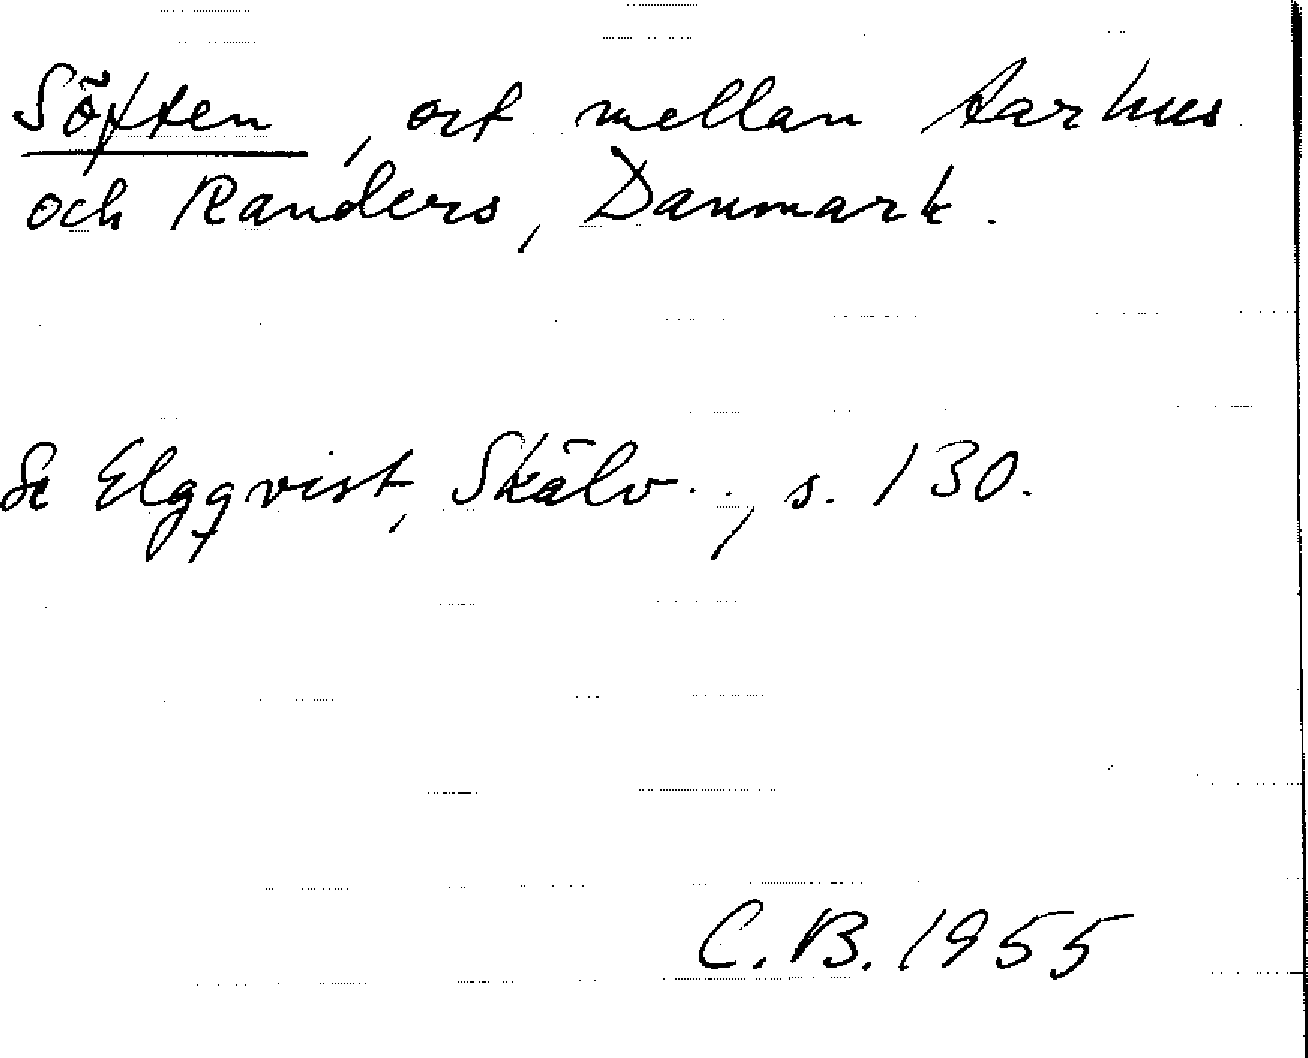 Söften, ort mellan Aarhus
och Randers, Danmark.
Se Elgqvist, Skälv.., s. 130.
C.B. 1955